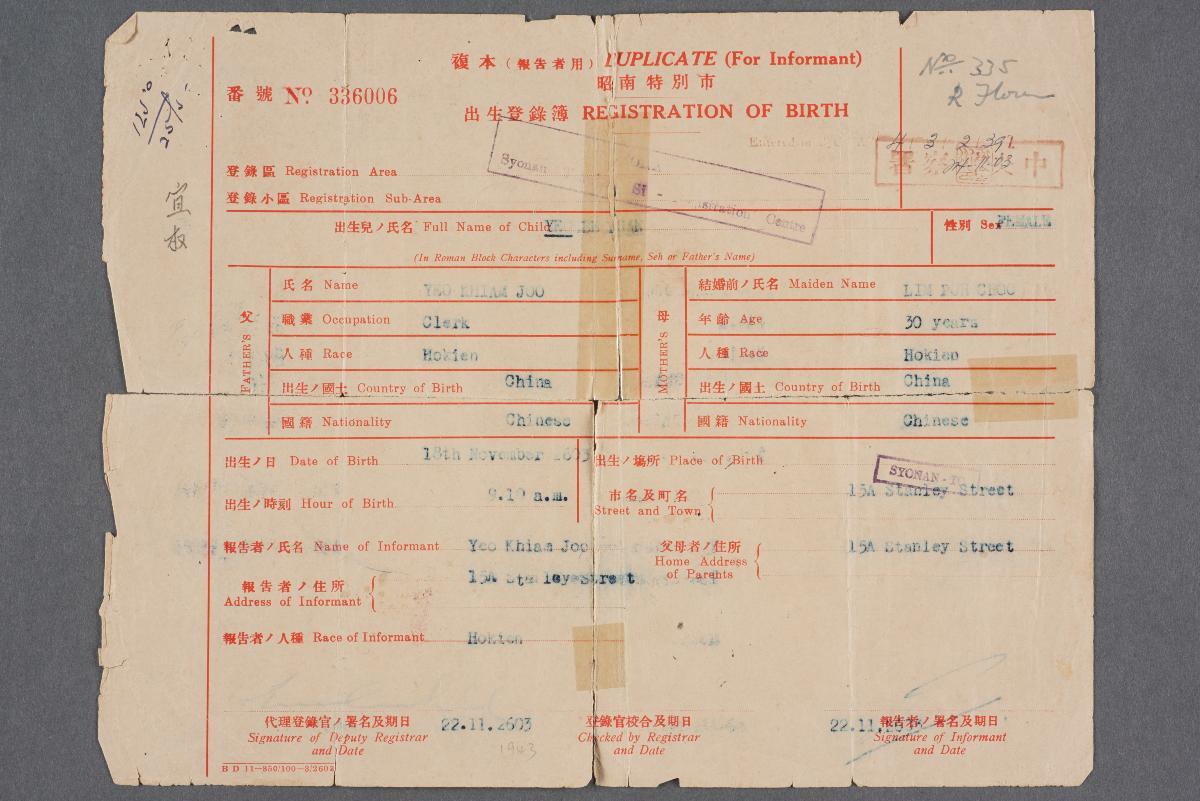 複本（報告者用） DUPLICATE (For Informant)
昭南特別市
番號 No. 336006
出生登錄簿 REGISTRATION OF BIRTH
No. 335
宜
叔
Syonan
登錄區 Registration Area
登錄小區 Registration Sub-Area
Registration Centre
出生兒ノ氏名 Full Name of Child
性別 Sex FEMALE
(In Roman Block Characters including Surname, Seh or Father's Name)
父 FATHER'S
氏名 Name YEO KHIAM JOO
職業 Occupation Clerk
人種 Race Hokien
出生ノ國土 Country of Birth China
國籍 Nationality Chinese
母 MOTHER'S
結婚前ノ氏名 Maiden Name LIM POH CHOO
年齡 Age 30 years
人種 Race Hokien
出生ノ國土 Country of Birth China
國籍 Nationality Chinese
出生ノ日 Date of Birth 18th November 2603
出生ノ時刻 Hour of Birth 9.10 a.m.
出生ノ場所 Place of Birth
SYONAN-TO
市名及町名 15A Stanley Street
Street and Town
報告者ノ氏名 Name of Informant Yeo Khiam Joo
父母者ノ住所 15A Stanley Street
Home Address
of Parents
報告者ノ住所 15A Stanley Street
Address of Informant
報告者ノ人種 Race of Informant Hokien
代理登錄官ノ署名及期日 22.11.2603
Signature of Deputy Registrar
and Date
1943
登錄官校合及期日
Checked by Registrar
and Date
22.11.2603 報告者ノ署名及期日
Signature of Informant
and Date
B D 11—850/100—3/2603